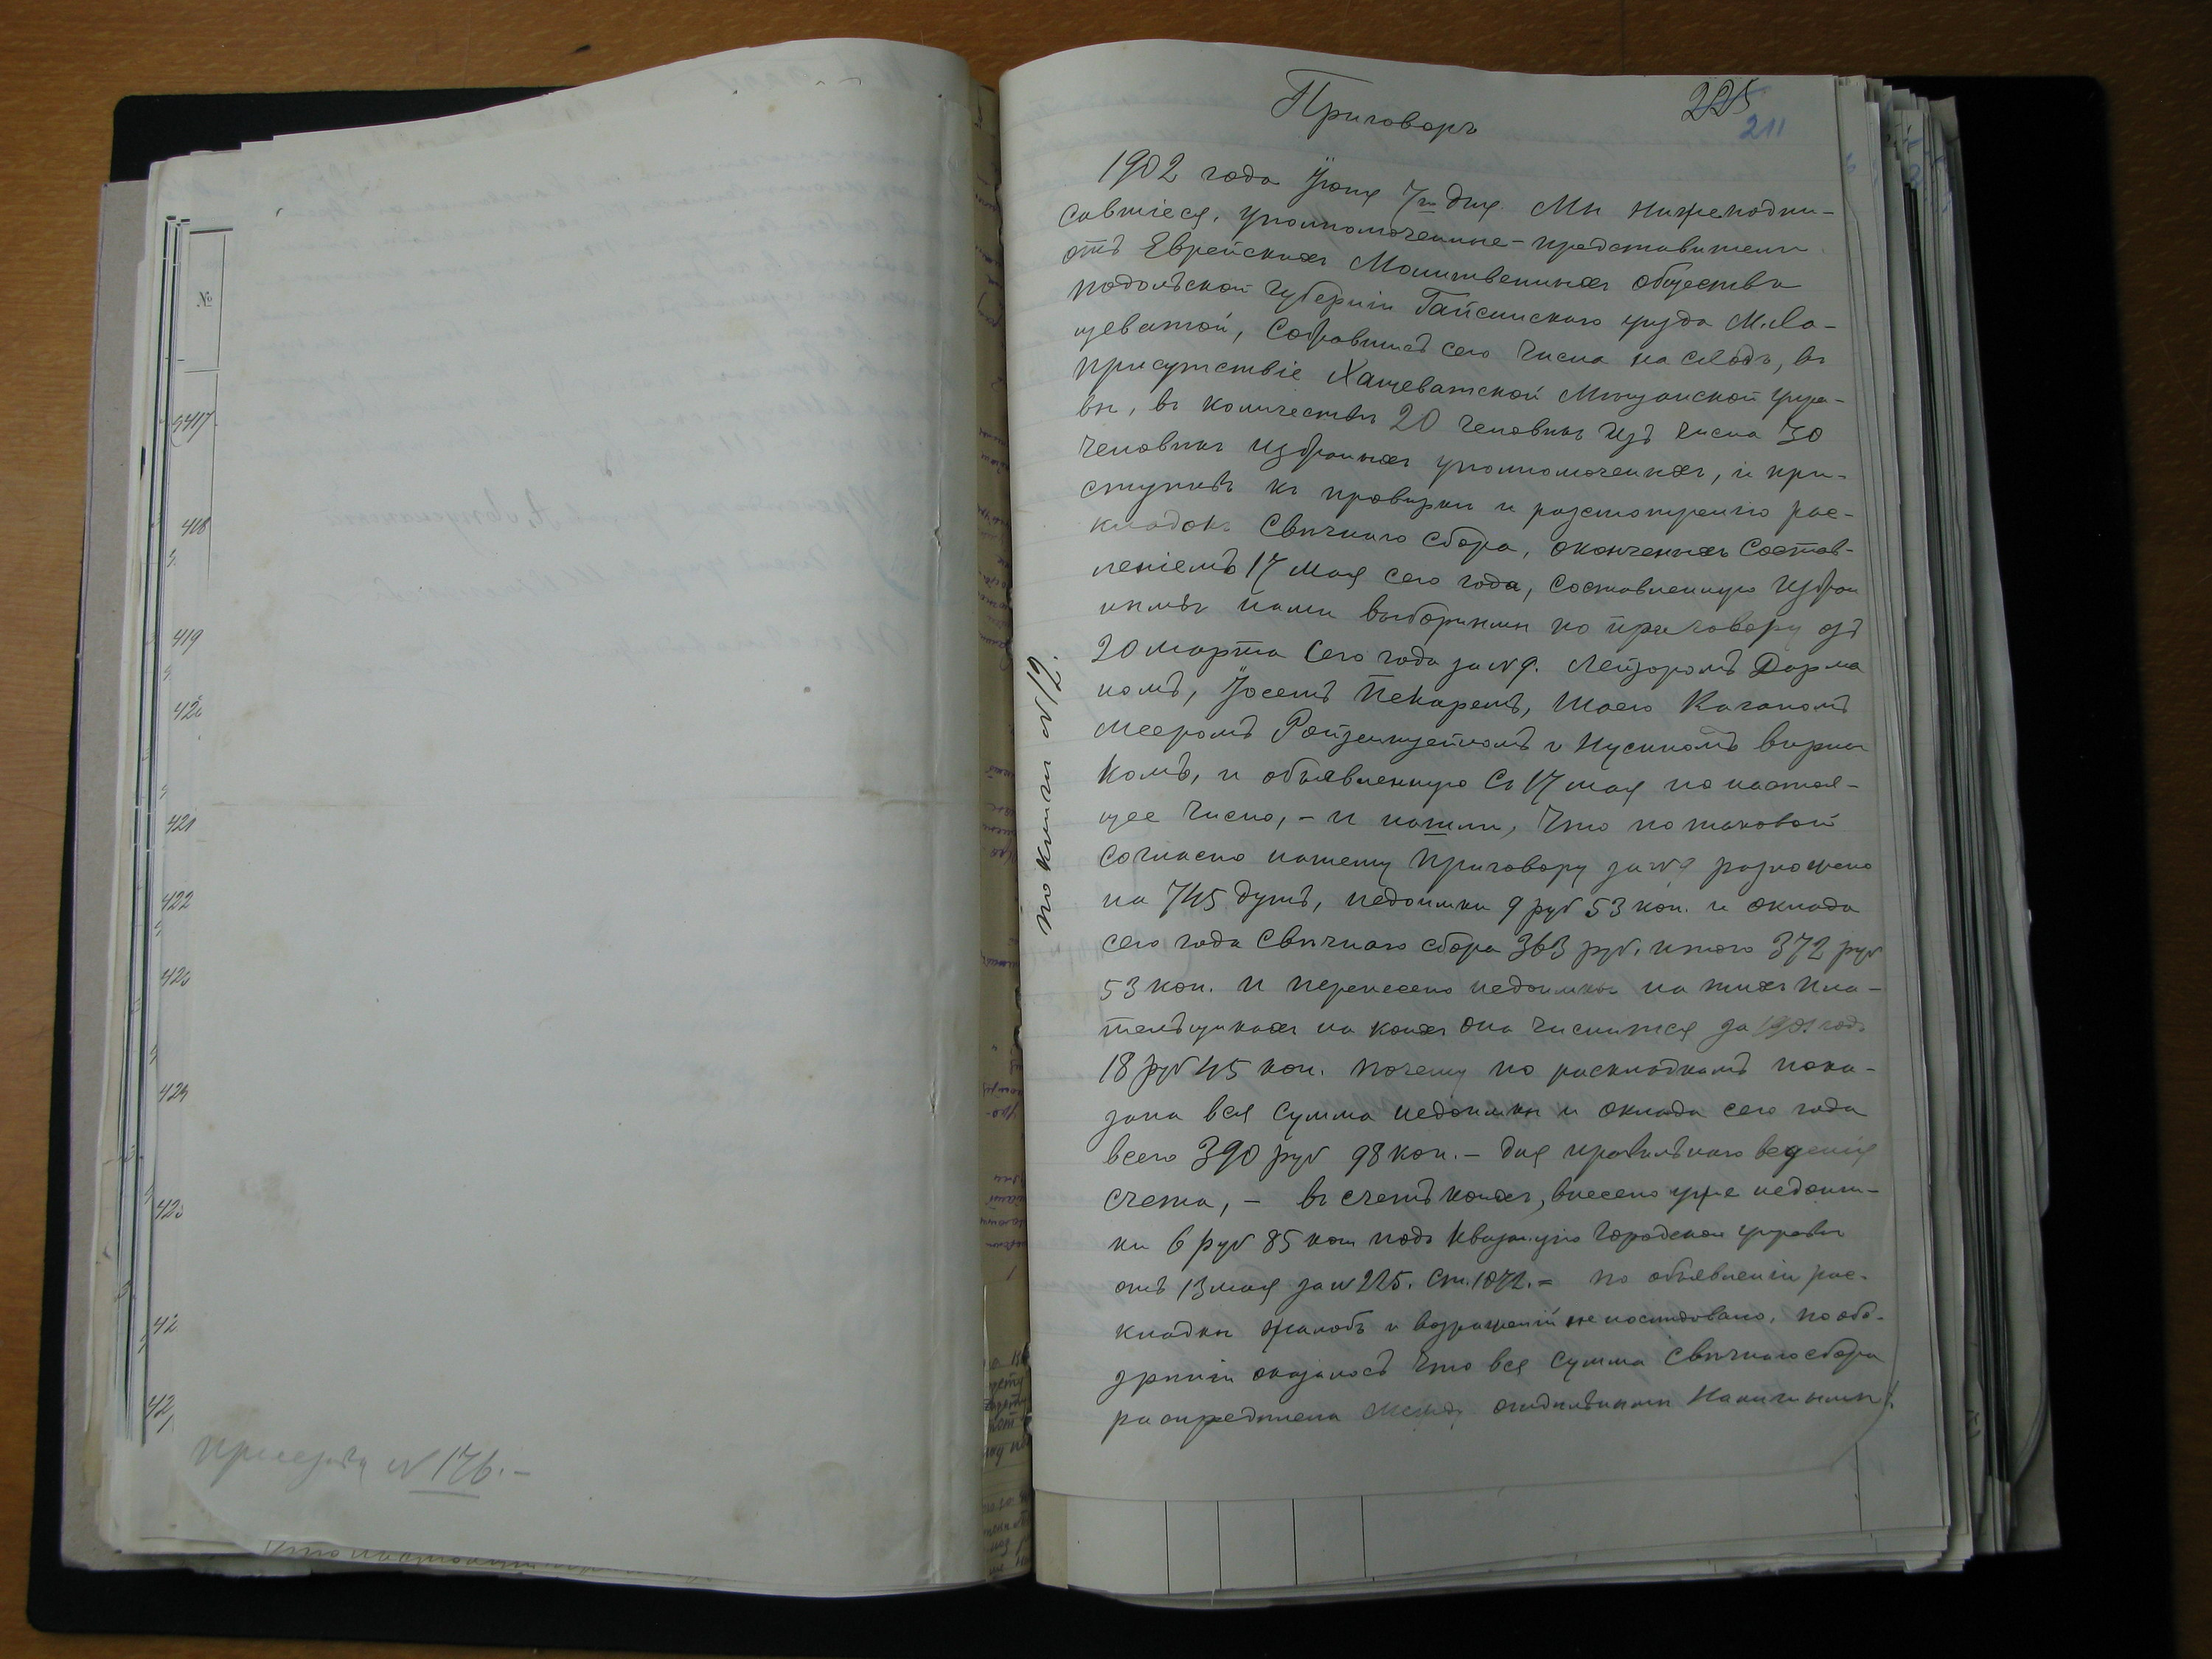 №
417
418
419
421
422
424
42
42
№ 176. –
Приговоръ
225
211
по книги № 12.
1902 года Іюня 7го дня. Мы нижеподпи-
савшіеся, уполномоченные – представители
отъ Еврейскихъ Молитвенныхъ общества
подольской губерніи Гайсинскаго уезда М. Ха-
щеватой, Собравшись сего числа на сходъ, въ
присутствіе Хащеватской Мещанской упра-
вы, въ количествѣ 20 человѣкъ изъ числа 30
человѣкъ избранныхъ уполномоченныхъ, и при-
ступивъ къ провѣрки и разсмотренію рас-
кладокъ Свѣчнаго сбора, оконченныхъ Состав-
леніемъ 17 мая сего года, составленную избран
нымъ нами выборными по приговору отъ
20 марта Сего года за № 9. Лейзоромъ Дорма
номъ, Іосемъ Пекаремъ, Шаею Каганомъ
Мееромъ и Нусиномъ
комъ, и объявленную съ 17 мая по настоя-
щее число, – и нашли, что по таковой
согласно нашему приговору за № 9 разложено
на 745 душъ, недоимки 9 руб 53 коп. и оклада
сего года свѣчнаго сбора 363 руб. итого 372 руб
53 коп. и перенесено недоимки на тихъ пла-
тельщикахъ на коихъ она числится за 1901 годъ
18 руб 45 коп. почему по раскладкамъ пока-
зана вся сумма недоимки и оклада сего года
всего 390 руб 98 коп. – для правильнаго веденія
счета, – въ счетъ коихъ, внесено уже недоим-
ки 6 руб 85 коп подъ квитанцію городской управы
отъ 13 мая за № 225. Ст. 1072. – по объявленіи рас-
кладки жалобъ и возраженій не послѣдовано, по обо-
зрѣніи оказалось что вся сумма свѣчнаго сбора
распределена между